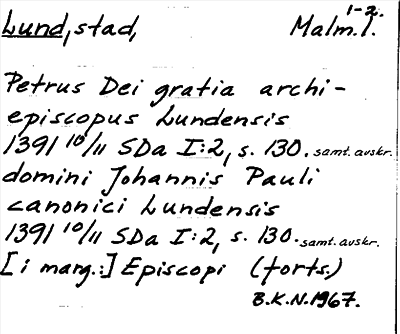 Lund, stad, Malm. 1. 1-2.
Petrus Dei gratia archi-
episcopus Lundensis
1391 10/11 SDa I:2, s. 130. samt. avskr.
domini Johannis Pauli
canonici Lundensis
1391 10/11 SDa I:2, s. 130. samt. avskr.
[i marg.:] Episcopi (forts.)
B.K.N. 1967.